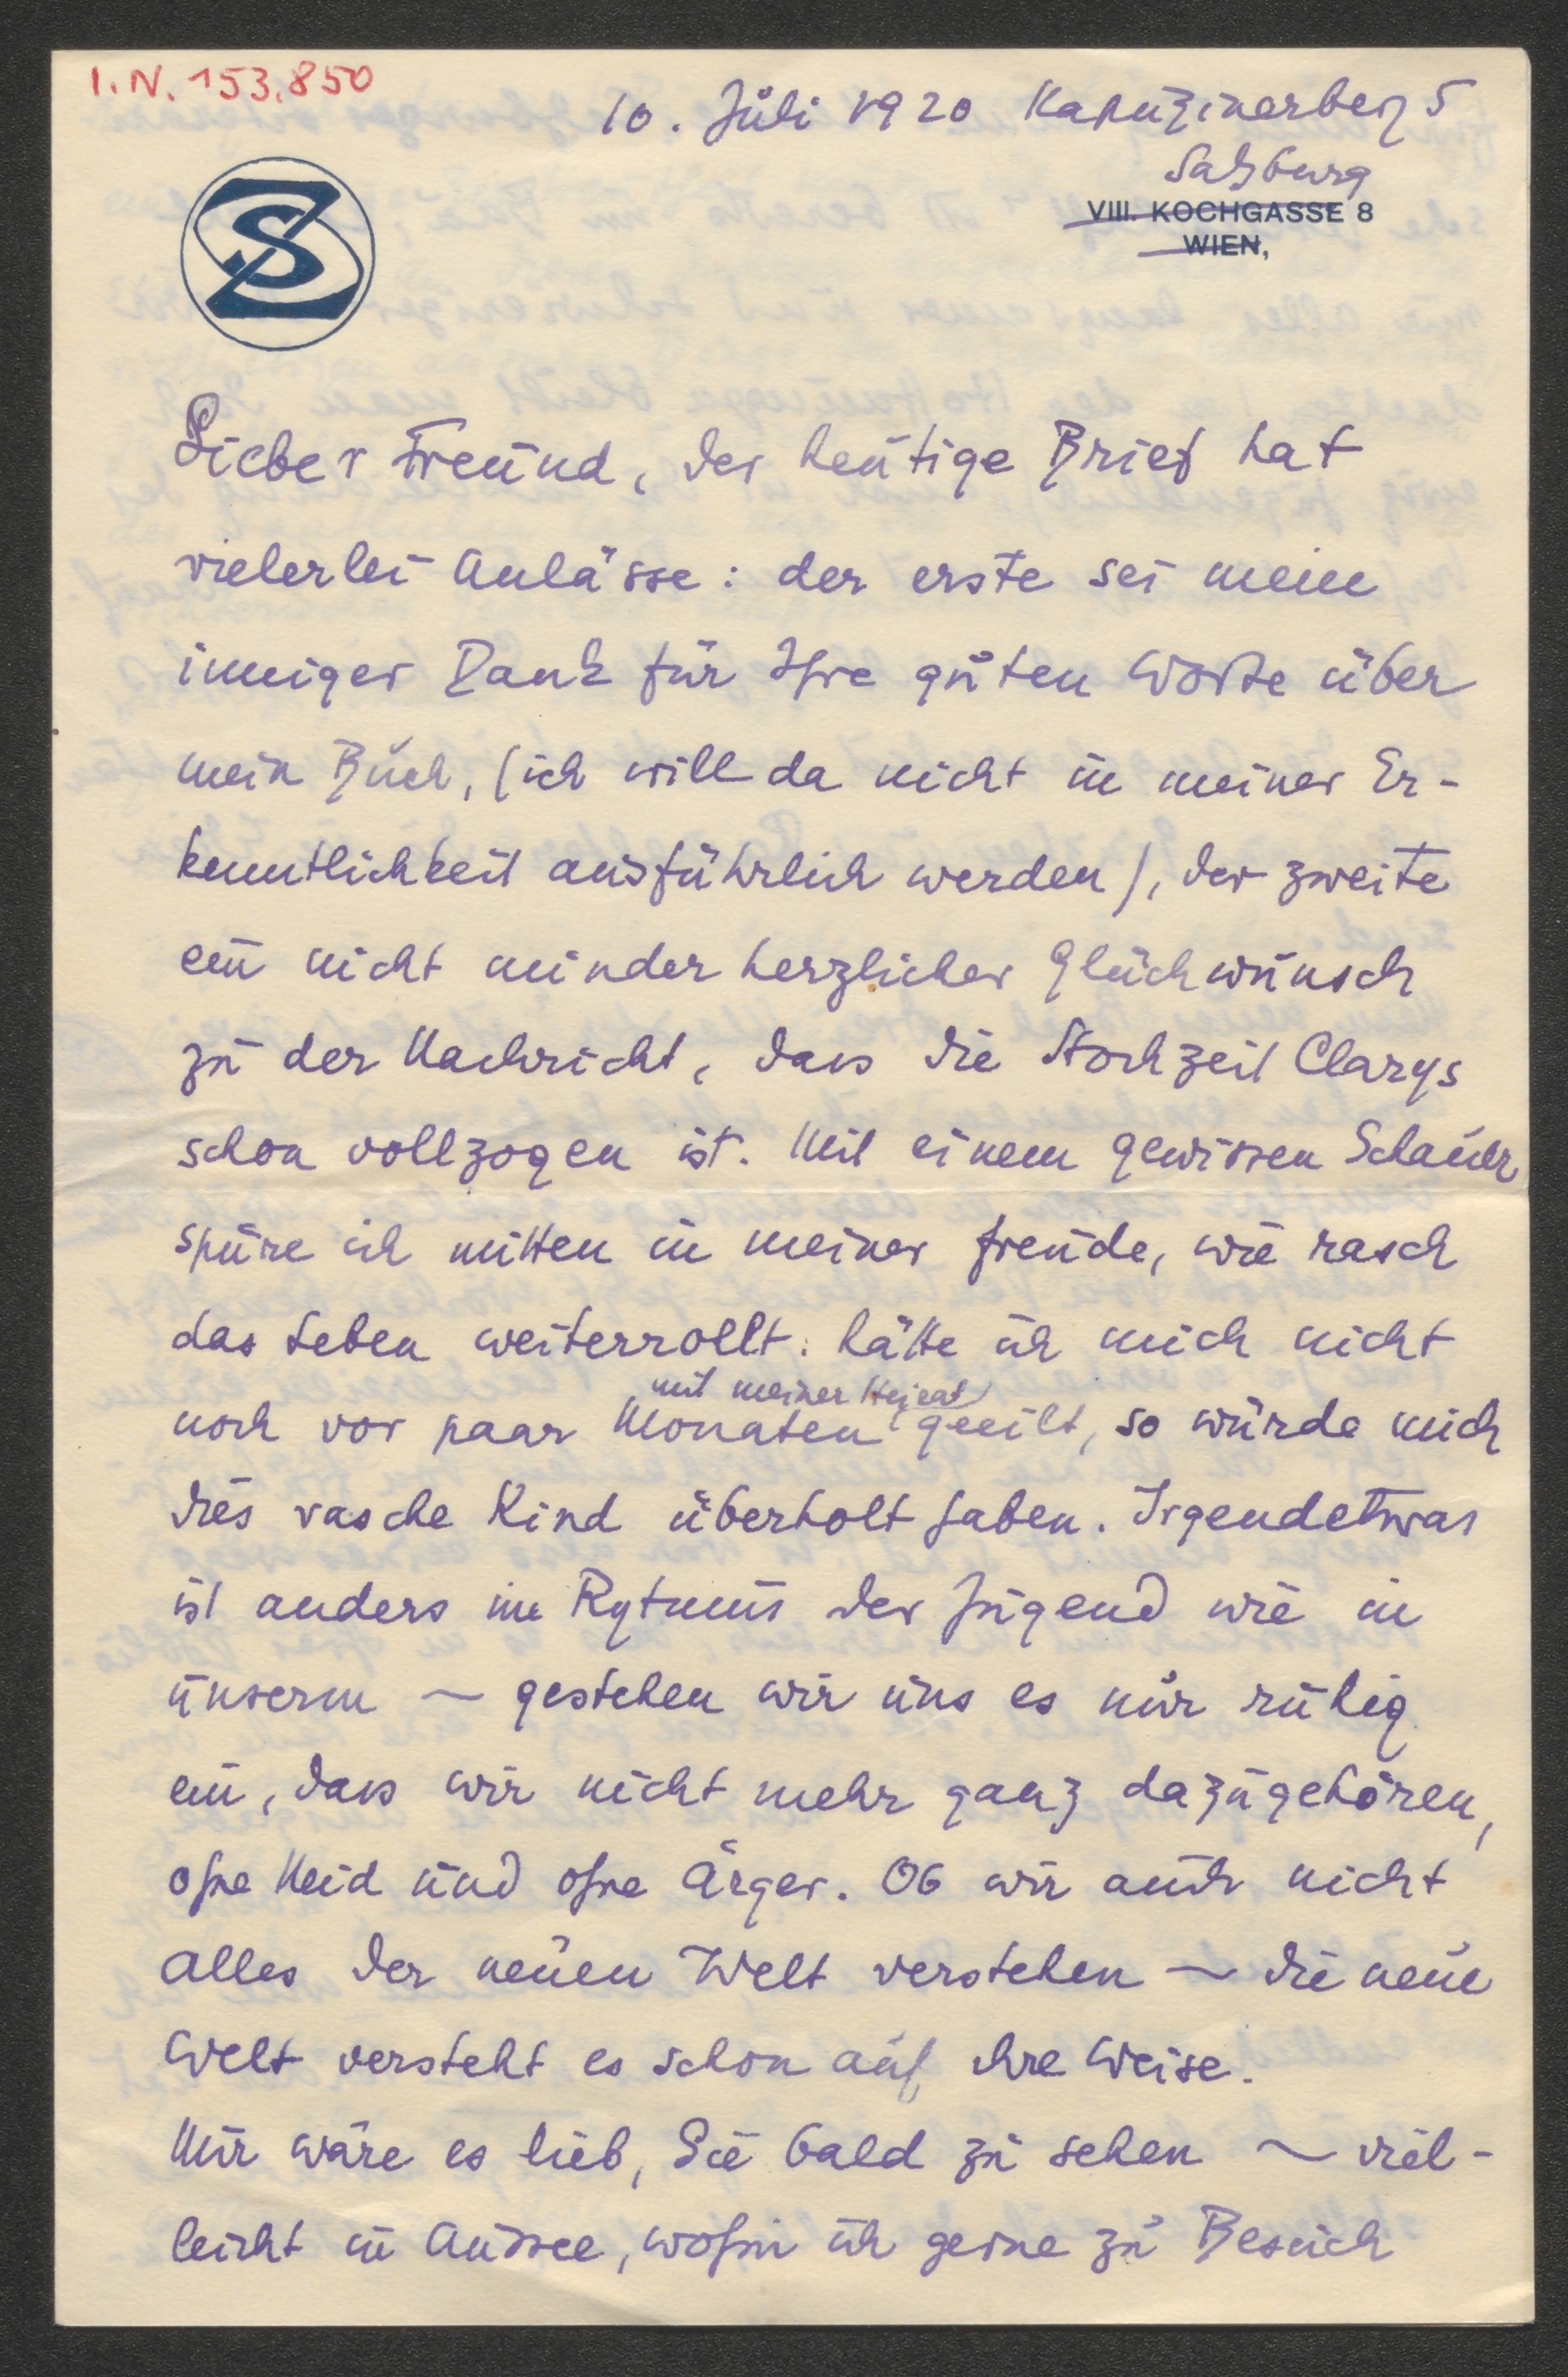 I.N. 153.850
10. Juli 1920 Kapuzinerberg 5
Salzburg
VIII. KOCHGASSE 8
WIEN,
SZ
Lieber Freund, der heutige Brief hat
vielerlei Anlässe: der erste sei mein
inniger Dank für Ihre guten Worte über
mein Buch, (ich will da nicht in meiner Er-
kenntlichkeit ausführlich werden), der zweite
ein nicht minder herzlicher Glückwunsch
zu der Nachricht, dass die Hochzeit Clarys
schon vollzogen ist. Mit einem gewissen Schauer
spüre ich mitten in meiner Freude, wie rasch
das Leben weiterrollt: hätte ich mich nicht
mit meiner Heirat
noch vor paar Monaten geeilt, so würde mich
dies rasche Kind überholt haben. Irgendetwas
ist anders im Rytmus der Jugend wie in
unserm – gestehen wir uns es nur ruhig
ein, dass wir nicht mehr ganz dazugehören,
ohne Neid und ohne Ärger. Ob wir auch nicht
alles der neuen Welt verstehen – die neue
Welt versteht es schon auf ihre Weise.
Mir wäre es lieb, Sie bald zu sehen – viel-
leicht in Aussee, wohin ich gerne zu Besuch